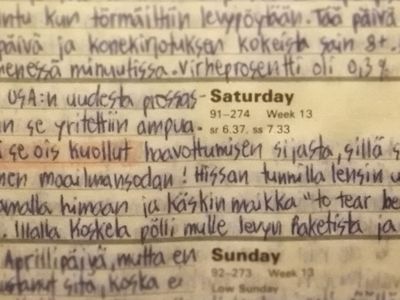 intu kun törmäiltiin levypöytään. Tää päivä
päivä ja konekirjotuksen kokeista sain 8+.
menessä minuutissa. Virheprosentti oli 0,3%
USA:n uudesta pressas- Saturday
91–274 Week 13
n se yritettiin ampua. sr 6.37, ss 7.33
i se ois kuollut haavottumisen sijasta, sillä s
men maailmansodan! Hissan tunnilla lensin u
amalla himaan ja käskin maikka "to tear be
. Illalla Koskela pölli mulle levyn Raketista ja
Aprillipäivä, mutta en Sunday
92–273 Week 13
ustanut sitä, koska e Low Sunday